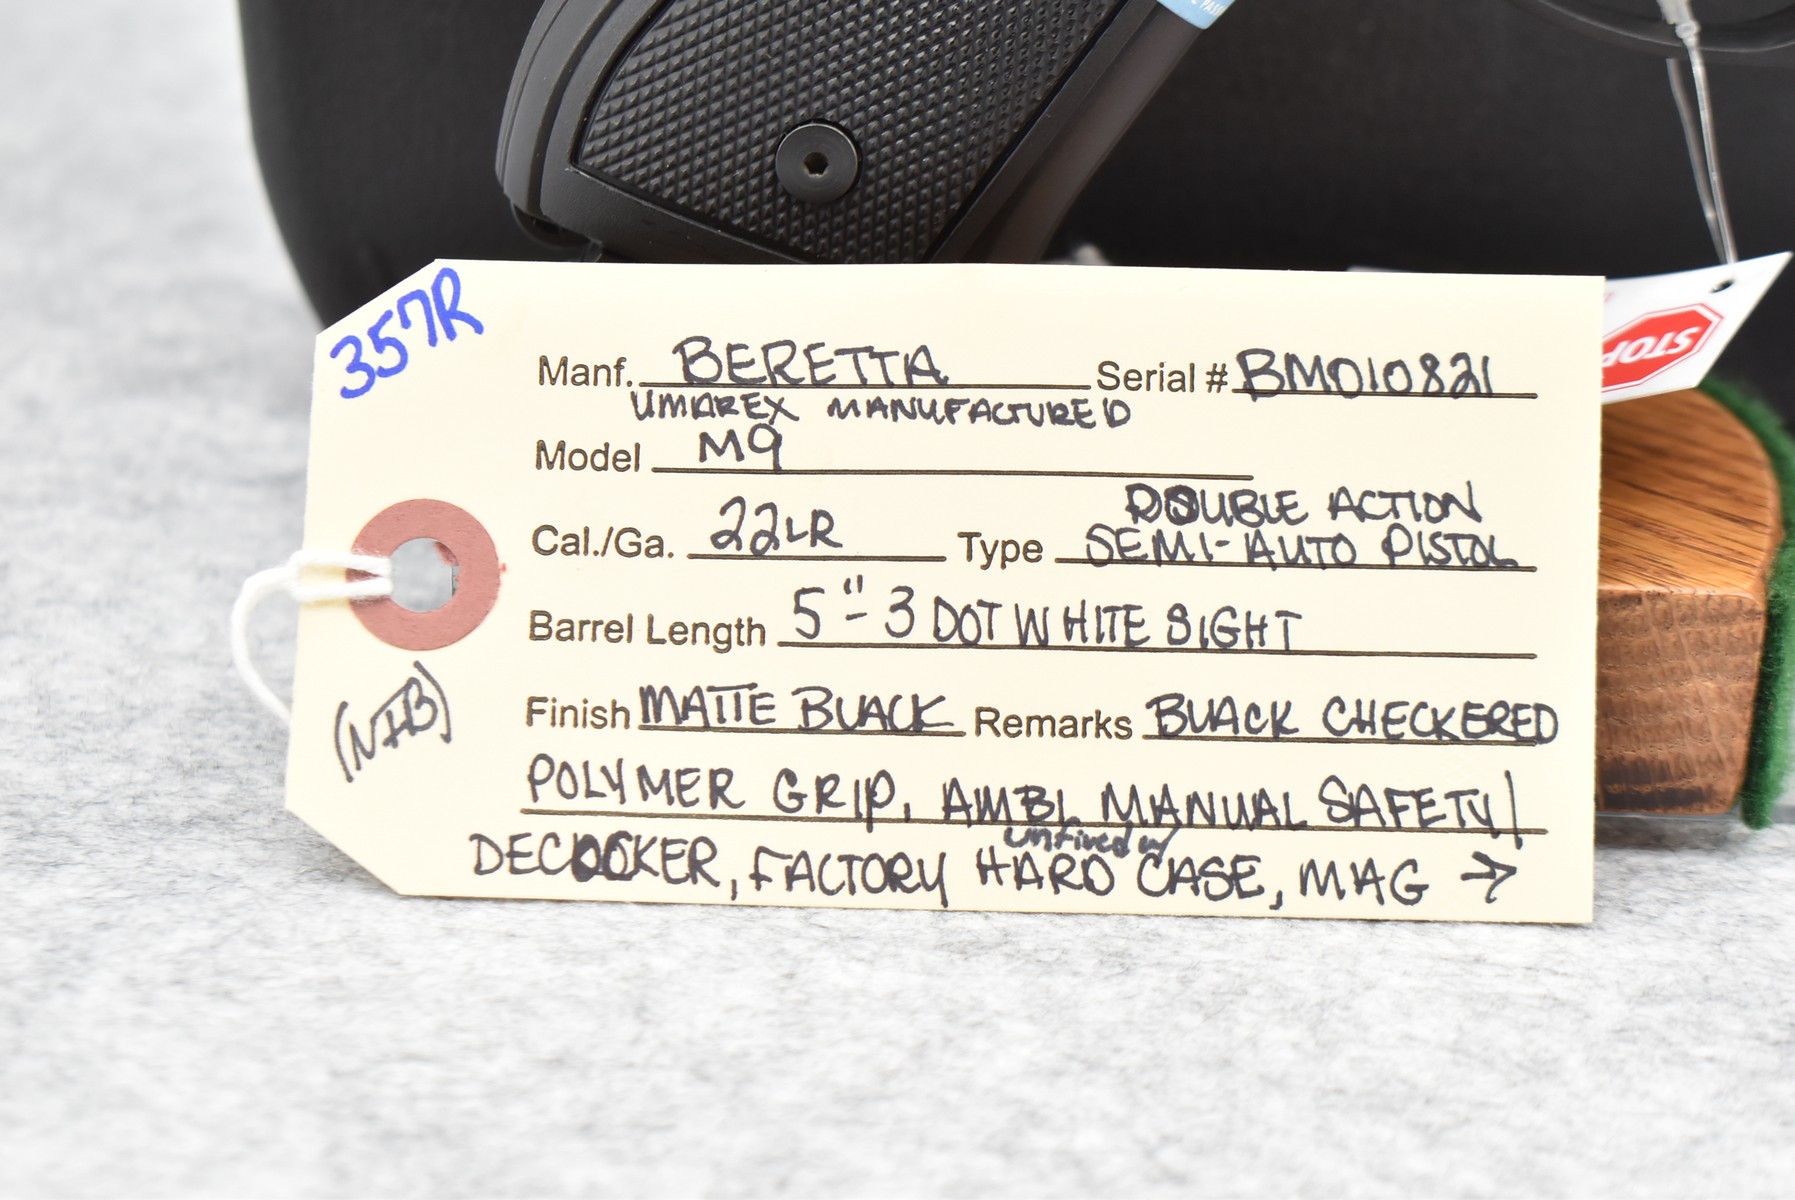 357R
Manf. BERETTA Serial # BM010821
UMAREX MANUFACTURED
Model M9
DOUBLE ACTION
Cal./Ga. 22LR Type SEMI-AUTO PISTOL
Barrel Length 5"- 3 DOT WHITE SIGHT
Finish MATTE BLACK Remarks BLACK CHECKERED
(NIB)
POLYMER GRIP, AMBI MANUAL SAFETY/
unfired w/
DECOCKER, FACTORY HARD CASE, MAG →
STOP